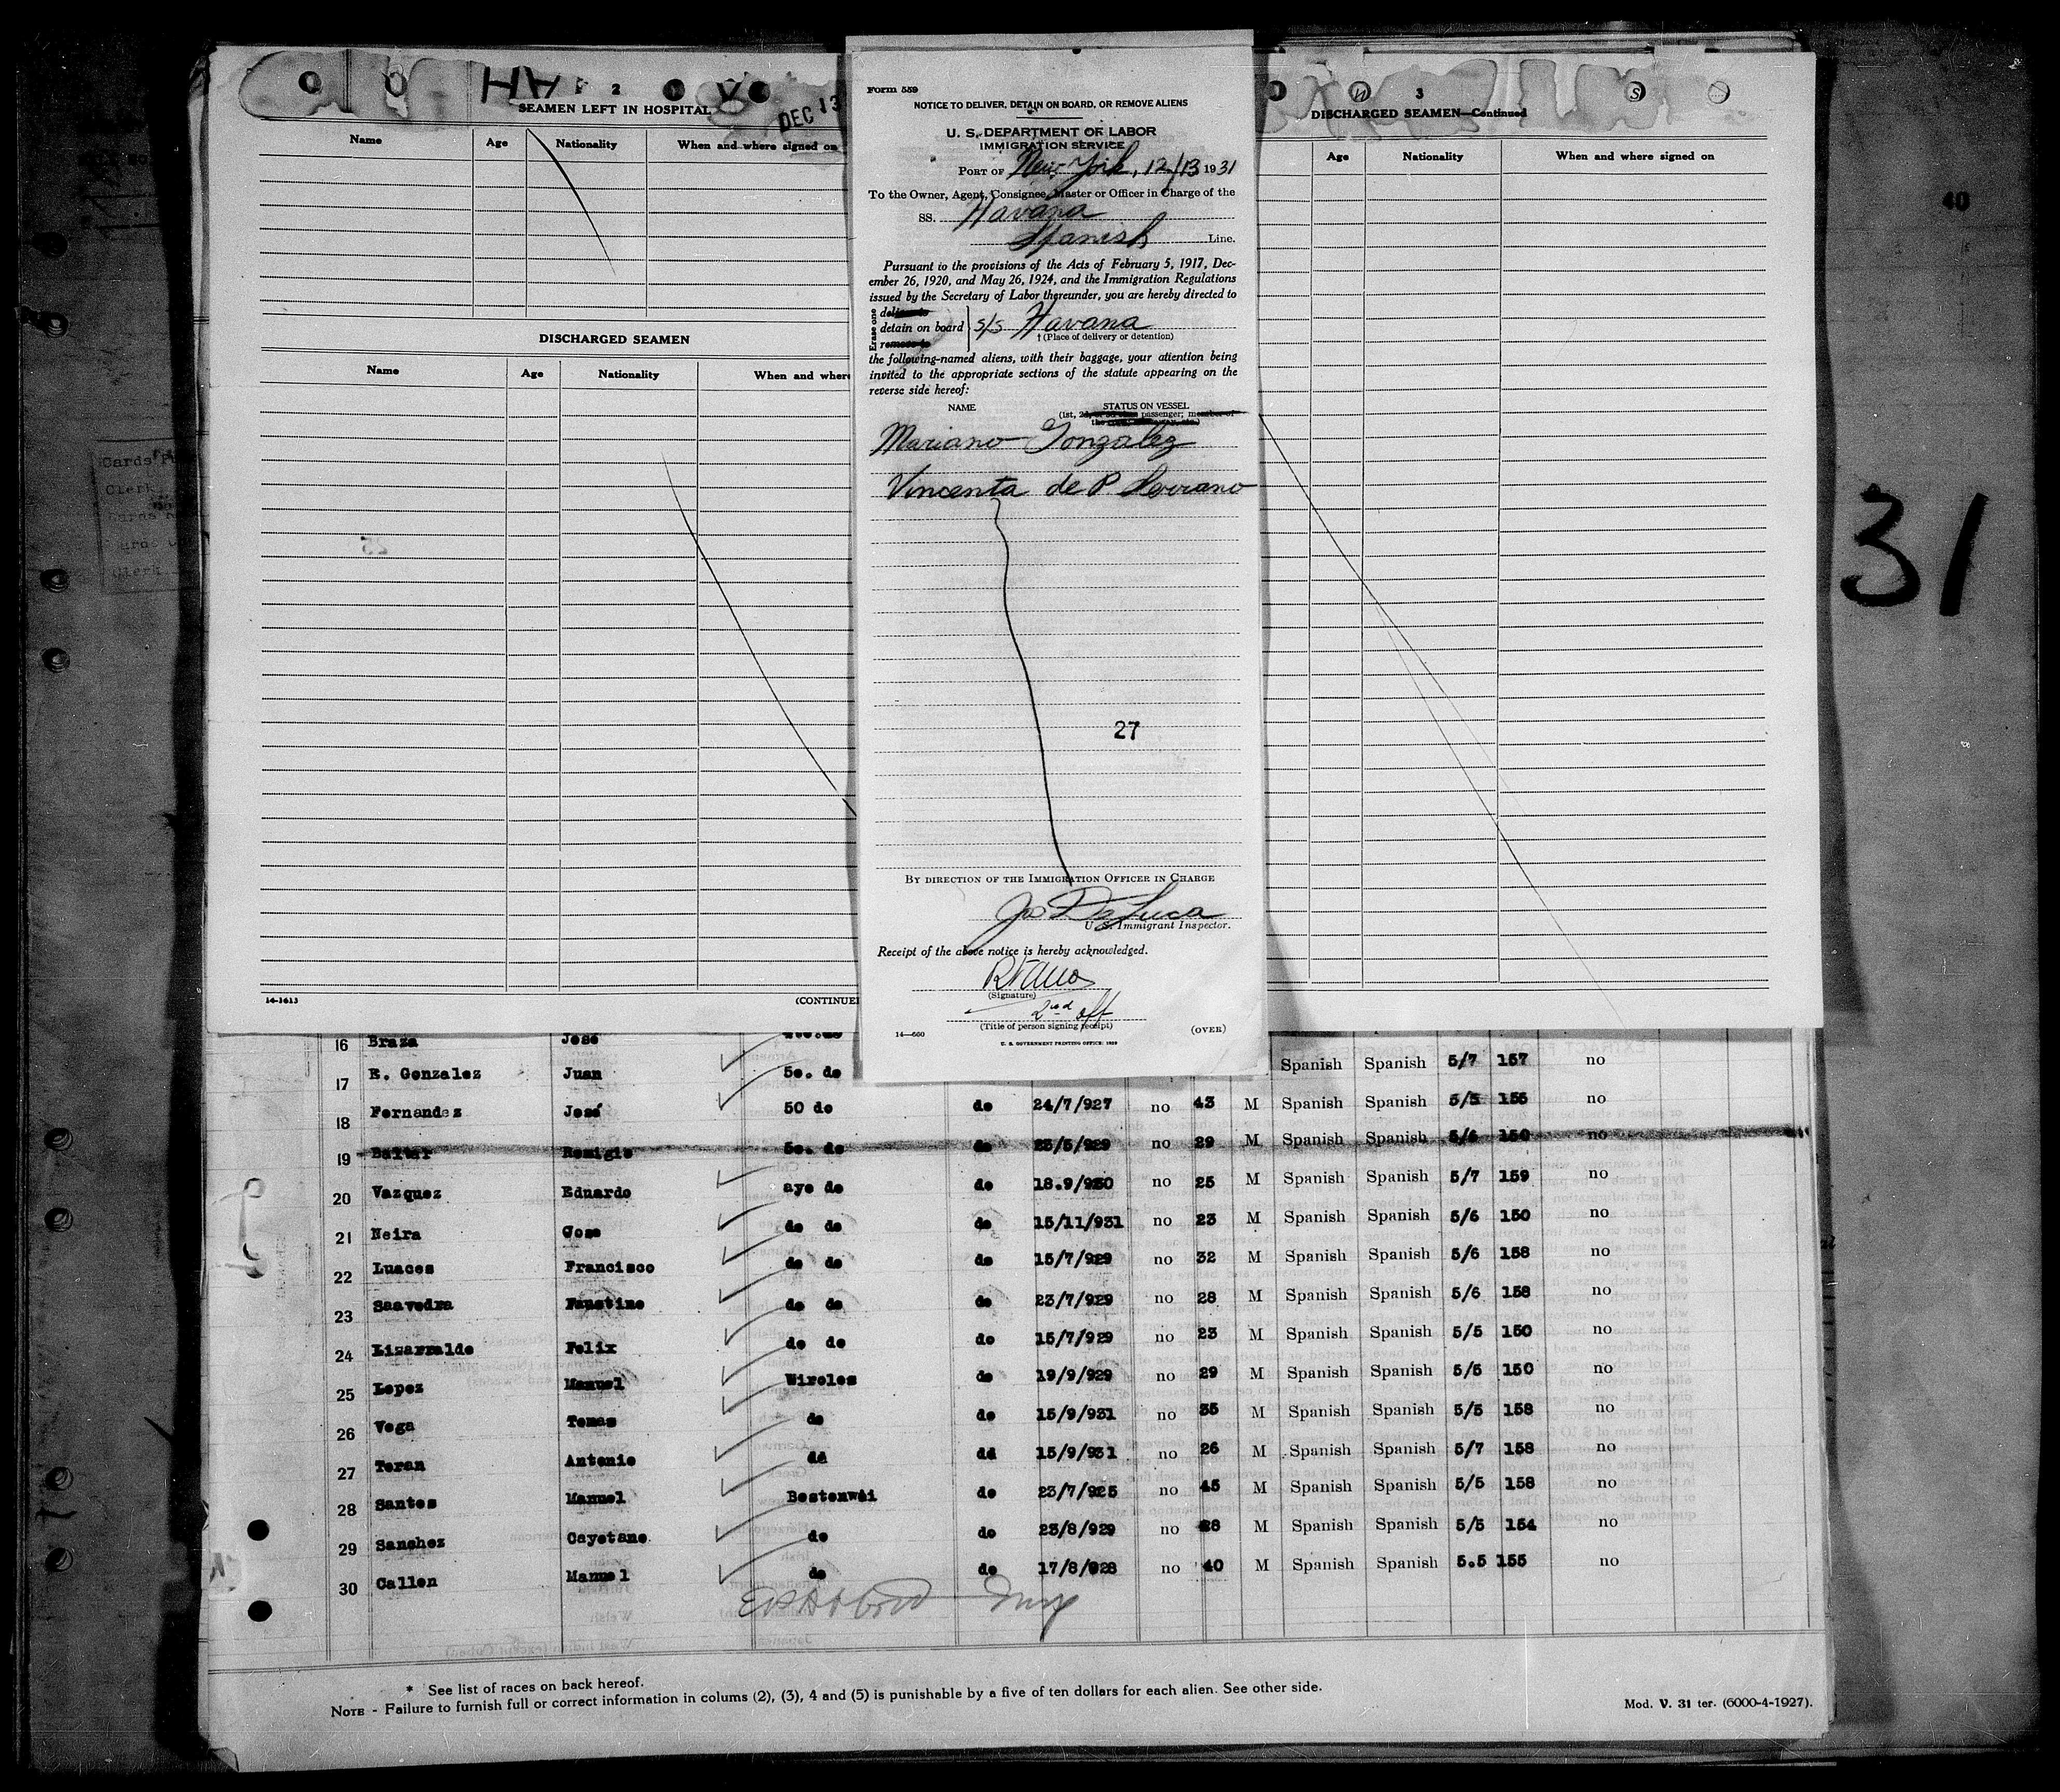 HA 2
SEAMEN LEFT IN HOSPITAL
DEC 13
Name Age Nationality When and where signed on
DISCHARGED SEAMEN
Name Age Nationality When and where
14-1613
(CONTINUE
Form 559
NOTICE TO DELIVER, DETAIN ON BOARD, OR REMOVE ALIENS
U. S. DEPARTMENT OF LABOR
IMMIGRATION SERVICE
PORT OF New York, 12/13 1931
To the Owner, Agent, Consignee, Master or Officer in Charge of the
SS. Havana
Spanish Line.
Pursuant to the provisions of the Acts of February 5, 1917, Dec-
ember 26, 1920, and May 26, 1924, and the Immigration Regulations
issued by the Secretary of Labor thereunder, you are hereby directed to
Erase one
deliver to
detain on board s/s Havana
remove to
† (Place of delivery or detention)
the following-named aliens, with their baggage, your attention being
invited to the appropriate sections of the statute appearing on the
reverse side hereof:
NAME STATUS ON VESSEL
(1st, 2d, or 3d class passenger; member of
Mariano Gonzalez
Vincenta de P Serrano
27
BY DIRECTION OF THE IMMIGRATION OFFICER IN CHARGE
Jos De Luca
U. S. Immigrant Inspector.
Receipt of the above notice is hereby acknowledged.
(Signature)
2nd off
(Title of person signing receipt)
14—560 (OVER)
U. S. GOVERNMENT PRINTING OFFICE: 1929
3
DISCHARGED SEAMEN—Continued
Age Nationality When and where signed on
40
31
Clerk
Clerk
16 Braza José
17 E. Gonzalez Juan 5o. de Spanish Spanish 5/7 157 no
18 Fernandez José 50 do do 24/7/927 no 43 M Spanish Spanish 5/5 155 no
19 Baltar Remigio 5o. do do 23/5/929 no 29 M Spanish Spanish 5/6 150 no
20 Vazquez Eduardo aye do do 18.9/930 no 25 M Spanish Spanish 5/7 159 no
21 Neira Gose do do do 15/11/931 no 23 M Spanish Spanish 5/6 150 no
22 Luaces Francisco do do do 15/7/929 no 32 M Spanish Spanish 5/6 158 no
23 Saavedra Faustino do do do 23/7/929 no 28 M Spanish Spanish 5/6 158 no
24 Lizarralde Felix do do do 15/7/929 no 23 M Spanish Spanish 5/5 150 no
25 Lopez Manuel Wireles do 19/9/929 no 29 M Spanish Spanish 5/5 150 no
26 Vega Tomas do do 15/9/931 no 35 M Spanish Spanish 5/5 158 no
27 Teran Antonio dd dd 15/9/931 no 26 M Spanish Spanish 5/7 158 no
28 Santos Manuel Bostonwái do 23/7/925 no 45 M Spanish Spanish 5/5 158 no
29 Sanchez Cayetano do do 23/8/929 no 28 M Spanish Spanish 5/5 154 no
30 Callon Manuel do do 17/8/928 no 40 M Spanish Spanish 5.5 155 no
* See list of races on back hereof.
NOTE - Failure to furnish full or correct information in colums (2), (3), 4 and (5) is punishable by a five of ten dollars for each alien. See other side.
Mod. V. 31 ter. (6000-4-1927).